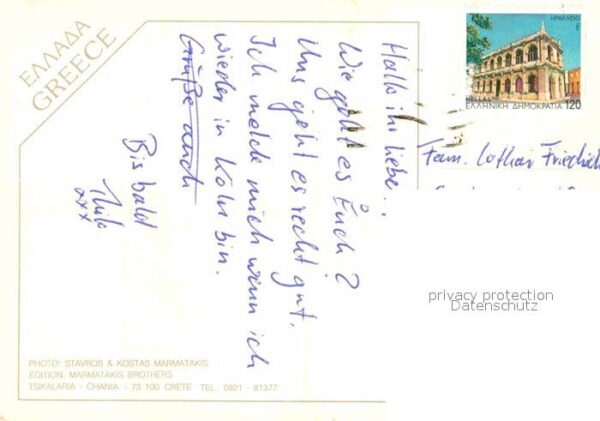 ΕΛΛΑΔΑ
GREECE
Hallo ihr liebe..
Wie geht es Euch?
Uns geht es recht gut.
Ich melde mich wenn ich
wieder in Köln bin.
Grüße euch
Bis bald
xxx
ΗΡΑΚΛΕΙΟ
HELLAS
ΕΛΛΗΝΙΚΗ ΔΗΜΟΚΡΑΤΙΑ 120
Fam. Lothar Friedrich
privacy protection
Datenschutz
PHOTO: STAVROS & KOSTAS MARMATAKIS
EDITION: MARMATAKIS BROTHERS
TSIKALARIA - CHANIA - 73 100 CRETE TEL. 0821 - 81377